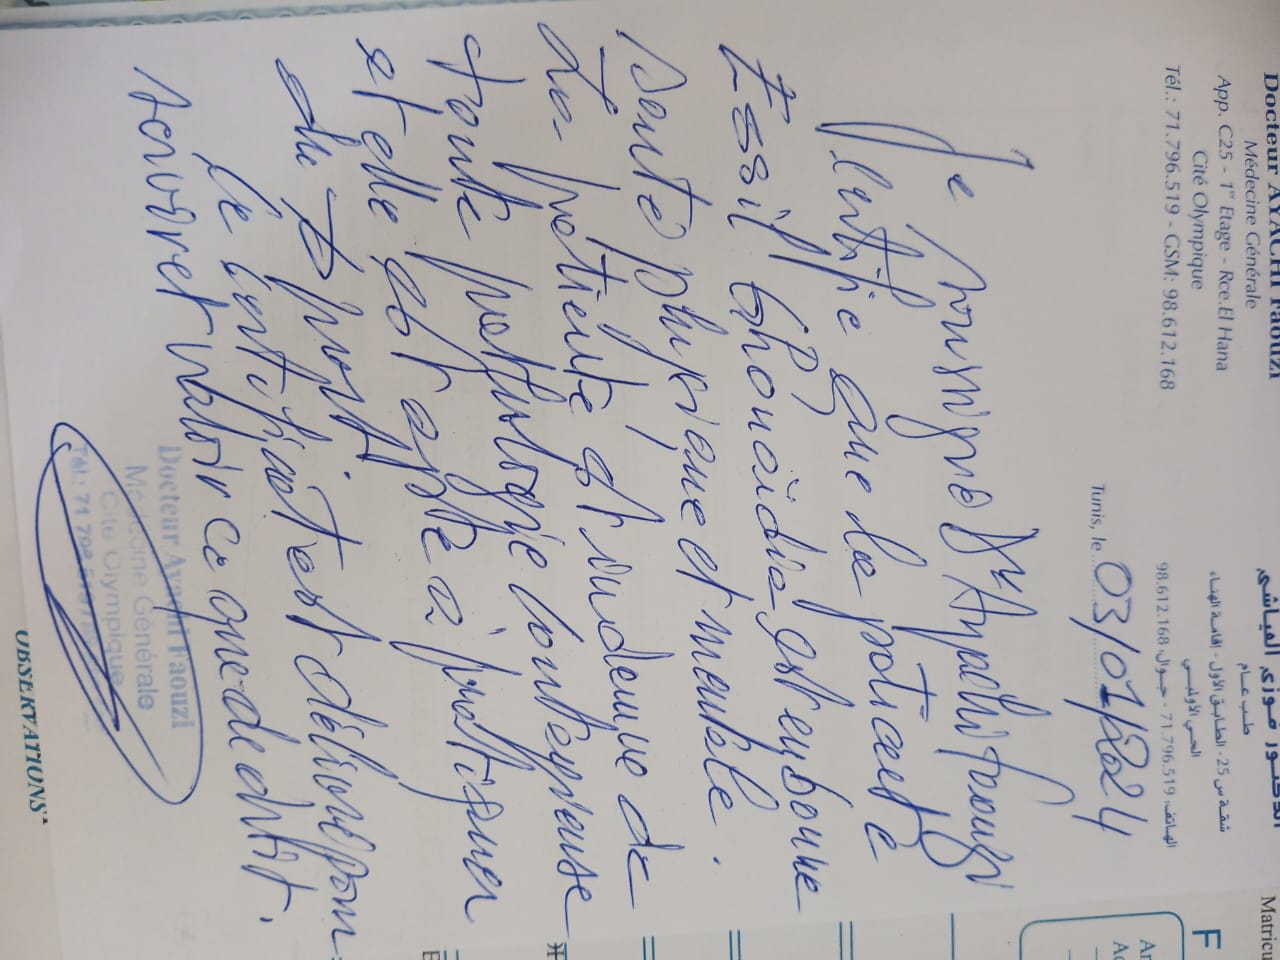 Docteur AYACHI Faouzi
Médecine Générale
App. C25 - 1er Etage - Rce.El Hana
Cité Olympique
Tél.: 71.796.519 - GSM: 98.612.168
الدكتور فوزي العياشي
طب عام
شقة س 25 - الطابق الأول - إقامة الهناء
الحي الأولمبي
الهاتف: 71.796.519 - جوال: 98.612.168
Tunis, le 03/01/2024
Je soussigné Dr Ayachi Faouzi
certifie que la patiente
Essil est en bonne
santé physique et mentale.
La patiente est indemne de
toute pathologie contagieuse
et elle est apte à pratiquer
du sport.
Ce certificat est délivré pour
servir et valoir ce que de droit.
Docteur Ayachi Faouzi
Médecine Générale
Cité Olympique
OBSERVATIONS
Matricu
F